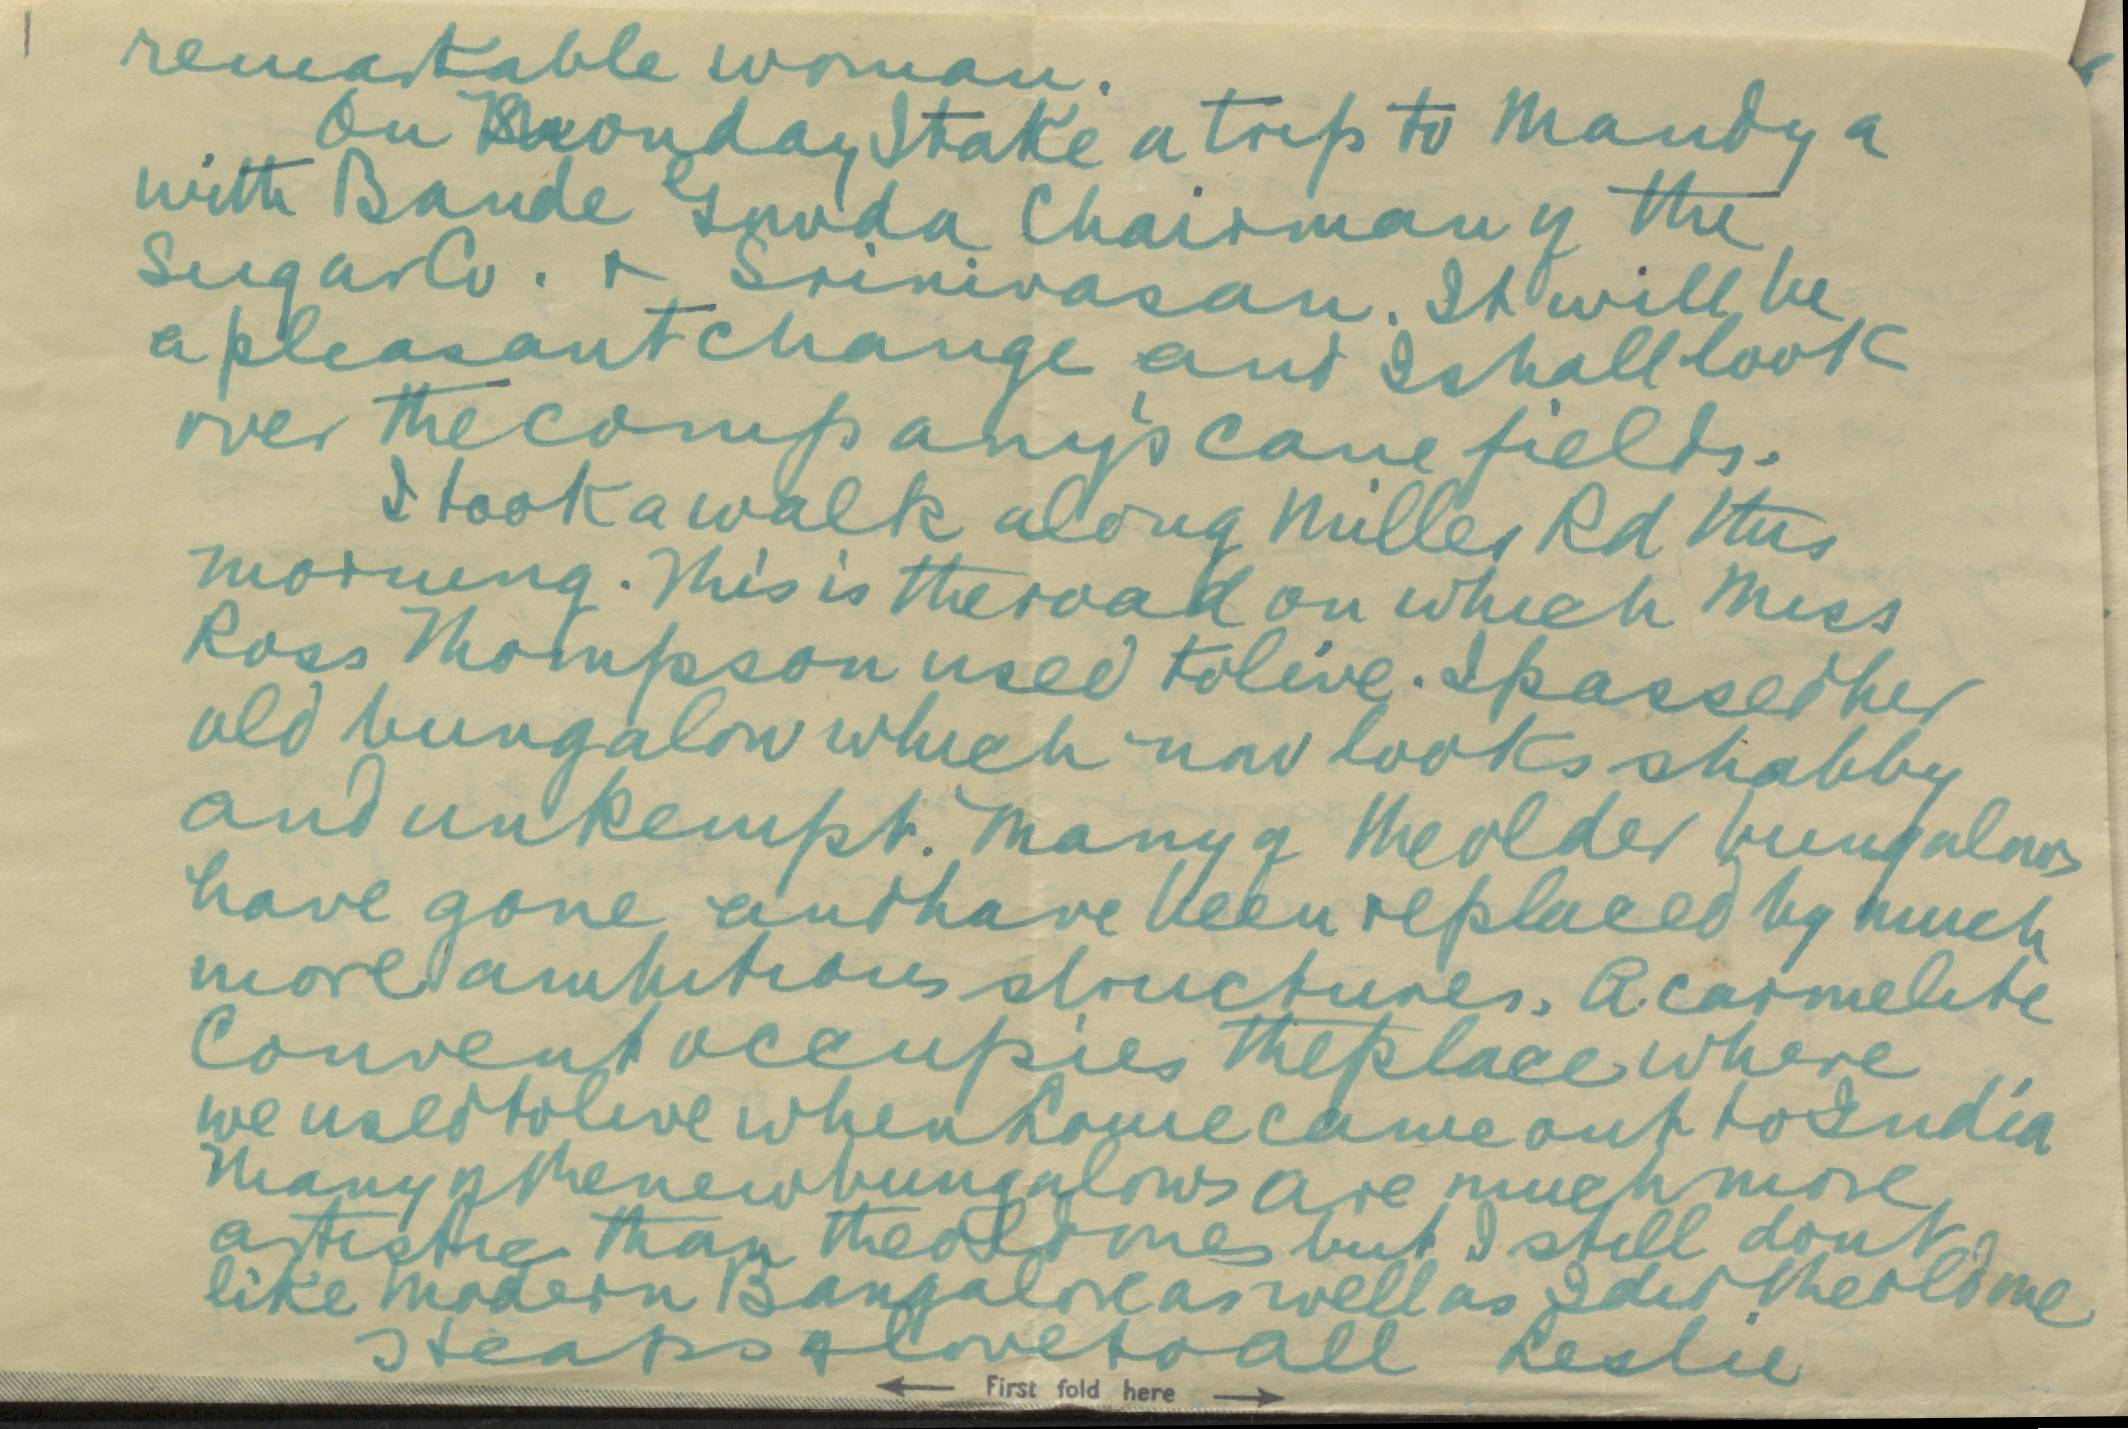 remarkable woman.
On Monday I take a trip to Mandya
with Bande Gowda Chairman of the
Sugar Co. & Srinivasan. It will be
a pleasant change and I shall look
over the company's cane fields.
I took a walk along Miller Rd this
morning. This is the road on which Miss
Ross Thompson used to live. I passed her
old bungalow which now looks shabby
and unkempt. Many of the older bungalows
have gone and have been replaced by much
more ambitious structures. A carmelite
Convent occupies the place where
we used to live when Lome came out to India
Many of the new bungalows are much more
artistic than the old ones but I still dont
like modern Bangalore as well as I did the old one
Heaps of love to all Leslie
First fold here